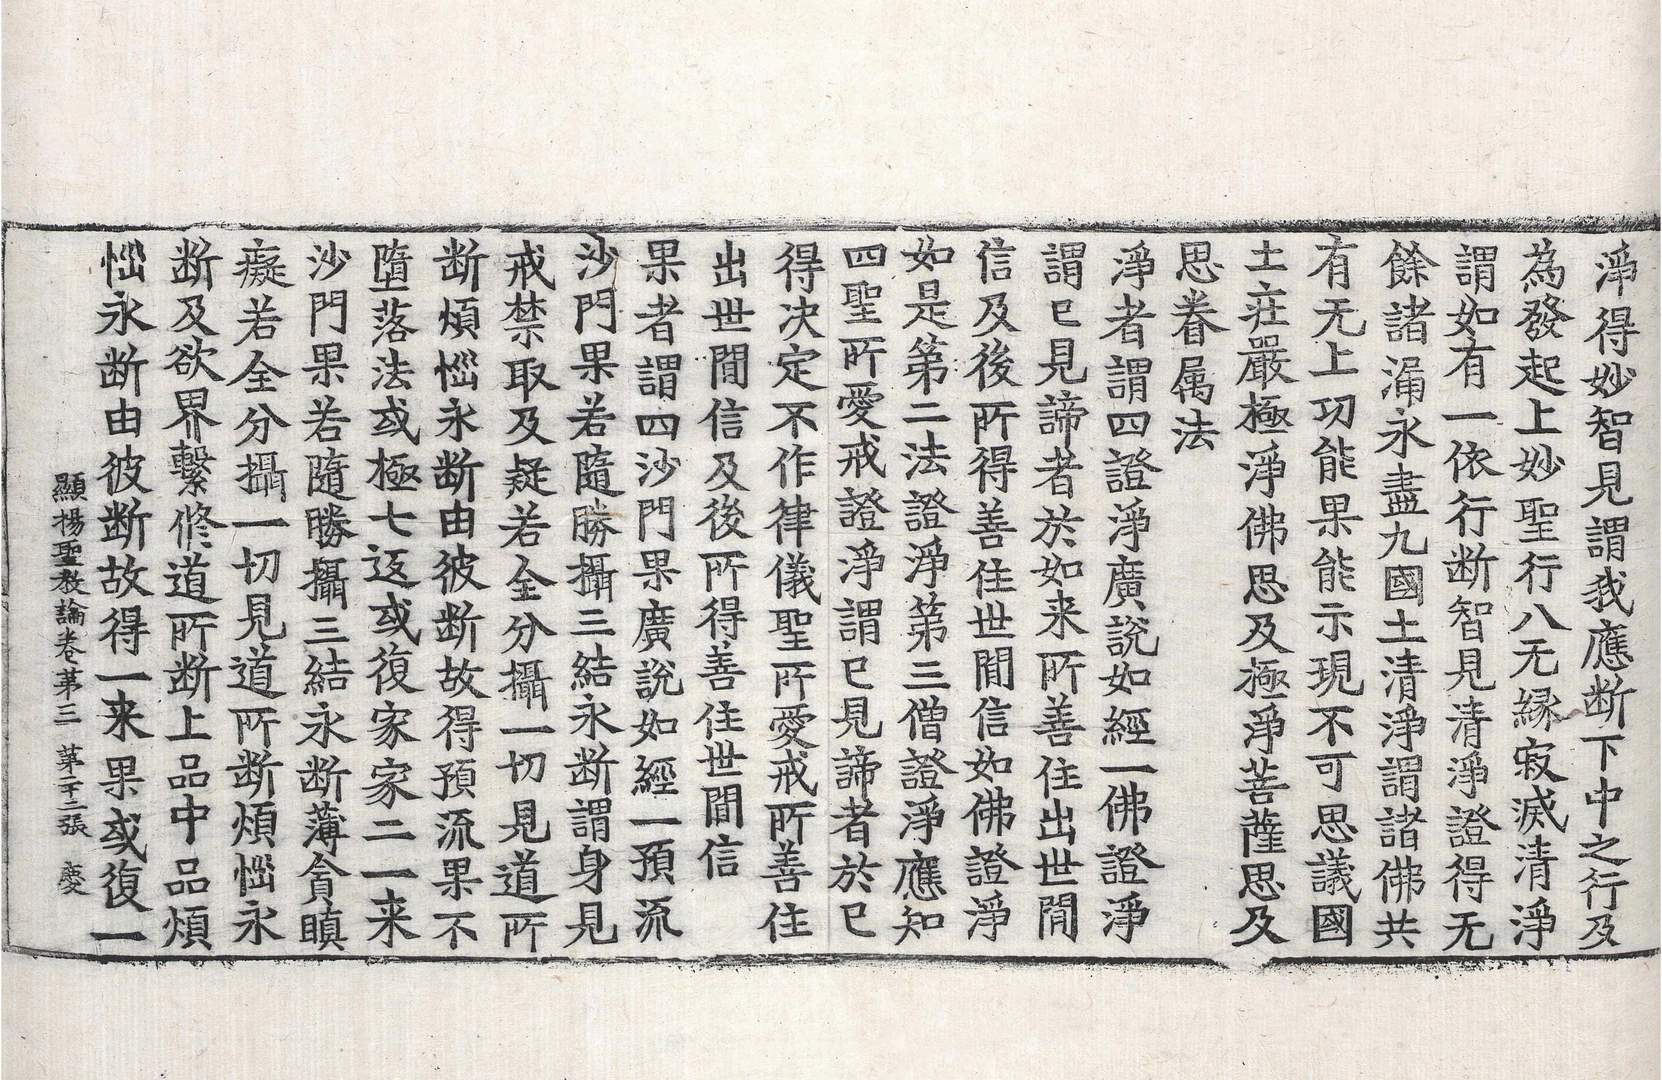 淨得妙智見謂我應断下中之行及
為發起上妙聖行八无緣寂滅清淨
謂如有一依行断智見清淨證得无
餘諸漏永盡九國土清淨謂諸佛共
有无上功能果能示現不可思議國
土莊嚴極淨佛思及極淨菩薩思及
思眷属法
淨者謂四證淨廣說如經一佛證淨
謂已見諦者於如来所善住出世間
信及後所得善住世間信如佛證淨
如是第二法證淨第三僧證淨應知
四聖所愛戒證淨謂已見諦者於已
得決定不作律儀聖所愛戒所善住
出世間信及後所得善住世間信
果者謂四沙門果廣說如經一預流
沙門果若隨勝攝三結永断謂身見
戒禁取及疑若全分攝一切見道所
断煩惱永断由彼断故得預流果不
墮落法或極七返或復家家二一来
沙門果若隨勝攝三結永断薄貪瞋
癡若全分攝一切見道所断煩惱永
断及欲界繫修道所断上品中品煩
惱永断由彼断故得一来果或復一
顯揚聖教論卷第三 第二十二張 慶